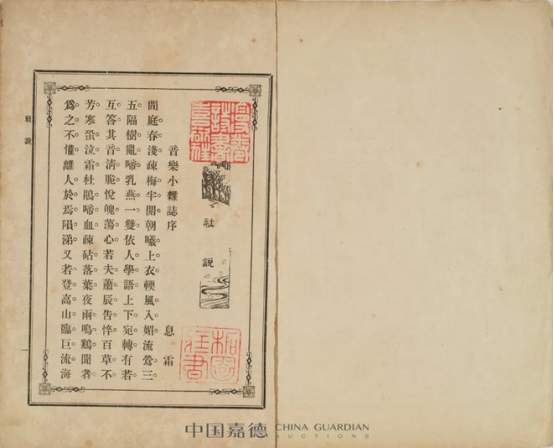 社說
音樂小雜誌序
息霜
閒庭春淺疎梅半開朝曦上衣輭風入媚流鶯三
五隔樹亂啼乳燕一雙依人學語上下宛轉有若
互答其音清脆悅魄蕩心若夫蕭辰告悴百草不
芳寒蛩泣霜杜鵑啼血疎砧落葉夜雨鳴鷄聞者
爲之不懽離人於焉隕涕又若登高山臨巨流海
社說
一
中国嘉德
CHINA GUARDIAN
AUCTIONS